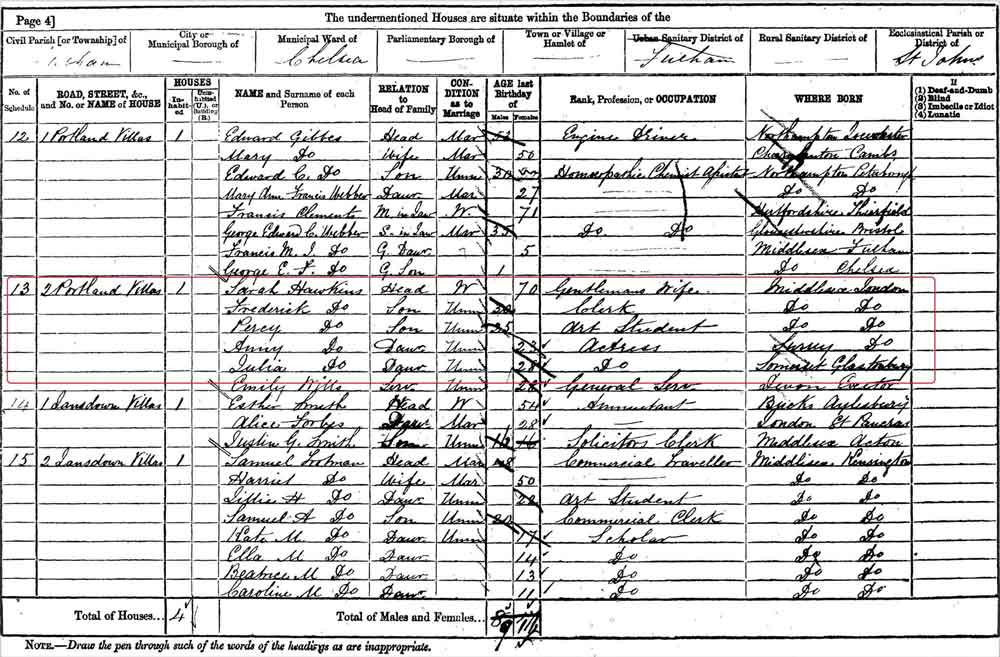 Page 4] The undermentioned Houses are situate within the Boundaries of the
Civil Parish [or Township] of City or Municipal Borough of Municipal Ward of Parliamentary Borough of Town or Village or Hamlet of Urban Sanitary District of Rural Sanitary District of Ecclesiastical Parish or District of
Chelsea Fulham St Johns
No. of Schedule ROAD, STREET, &c., and No. or NAME of HOUSE HOUSES In-habit-ed Un-inhabited (U.), or Building (B.) NAME and Surname of each Person RELATION to Head of Family CON-DITION as to Marriage AGE last Birthday of Males Females Rank, Profession, or OCCUPATION WHERE BORN If (1) Deaf-and-Dumb (2) Blind (3) Imbecile or Idiot (4) Lunatic
12 1 Portland Villas 1 Edward Gibbes Head Mar Engine Driver Northampton
Mary Do Wife Mar 50 Cambs
Edward C. Do Son Unm 30 Homœopathic Chemist Northampton
Mary Ann Francis Webber Daur Mar 27 Do Do
Francis Clements M. in Law W. 71 Hertfordshire
George Edward C. Webber S. in Law Mar 35 Do Do Gloucestershire Bristol
Francis M. J. Do G. Daur 5 Middlesex Fulham
George E. F. Do G. Son 1 Do Chelsea
13 2 Portland Villas 1 Sarah Hawkins Head W 70 Gentlemans Wife Middlesex London
Frederick Do Son Unm Clerk Do Do
Percy Do Son Unm 25 Art Student Do Do
Anny Do Daur Unm 23 Actress Surrey Do
Julia Do Daur Unm 28 Do Somerset Glastonbury
Emily Wills Serv Unm 28 General Serv Devon Exeter
14 1 Lansdown Villas 1 Esther Smith Head W 54 Annuitant Bucks Aylesbury
Alice Forbes Daur Mar 28 London St Pancras
Justin G. Smith Son Unm 16 16 Solicitors Clerk Middlesex Acton
15 2 Lansdown Villas 1 Samuel Footman Head Mar 48 Commercial Traveller Middlesex Kensington
Harriet Do Wife Mar 50 Do Do
Lillie H Do Daur Unm 22 Art Student Do Do
Samuel A Do Son Unm 20 Commercial Clerk Do Do
Kate M Do Daur Unm 17 Scholar Do Do
Ella M Do Daur 14 Do Do Do
Beatrice M Do Daur 13 Do Do Do
Caroline M Do Daur 11 Do Do Do
Total of Houses... 4 Total of Males and Females... 9 14
NOTE.—Draw the pen through such of the words of the headings as are inappropriate.